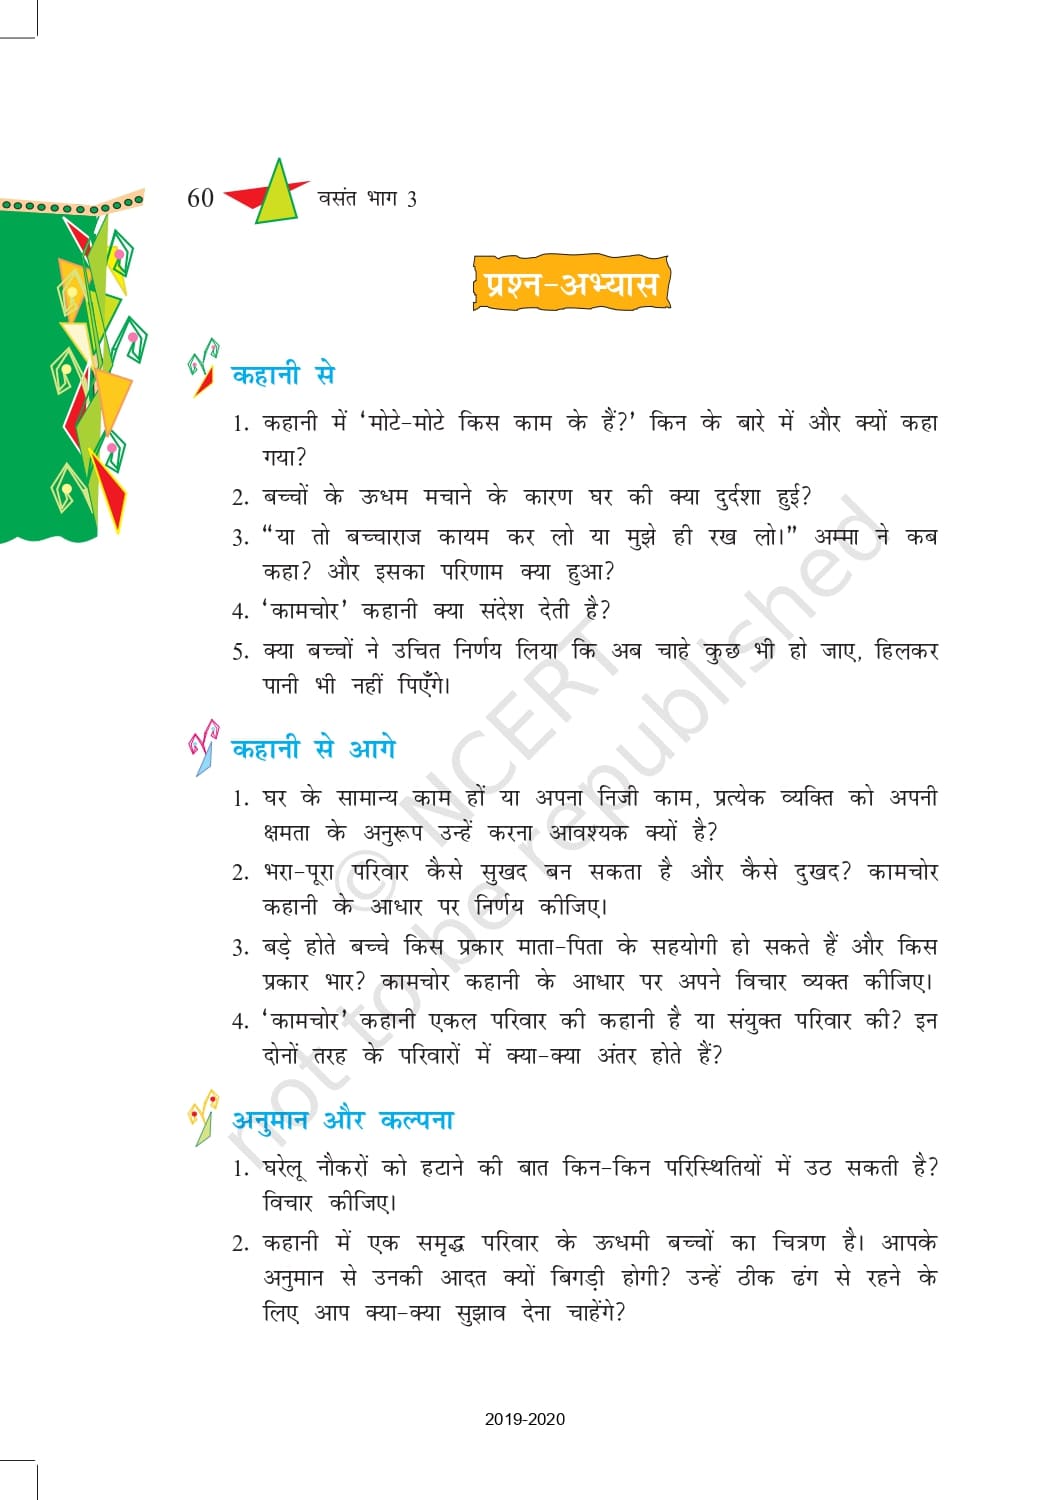 60 वसंत भाग 3
प्रश्न-अभ्यास
कहानी से
1. कहानी में ‘मोटे-मोटे किस काम के हैं?’ किन के बारे में और क्यों कहा
गया?
2. बच्चों के ऊधम मचाने के कारण घर की क्या दुर्दशा हुई?
3. “या तो बच्चाराज कायम कर लो या मुझे ही रख लो।” अम्मा ने कब
कहा? और इसका परिणाम क्या हुआ?
4. ‘कामचोर’ कहानी क्या संदेश देती है?
5. क्या बच्चों ने उचित निर्णय लिया कि अब चाहे कुछ भी हो जाए, हिलकर
पानी भी नहीं पिएँगे।
कहानी से आगे
1. घर के सामान्य काम हों या अपना निजी काम, प्रत्येक व्यक्ति को अपनी
क्षमता के अनुरूप उन्हें करना आवश्यक क्यों है?
2. भरा-पूरा परिवार कैसे सुखद बन सकता है और कैसे दुखद? कामचोर
कहानी के आधार पर निर्णय कीजिए।
3. बड़े होते बच्चे किस प्रकार माता-पिता के सहयोगी हो सकते हैं और किस
प्रकार भार? कामचोर कहानी के आधार पर अपने विचार व्यक्त कीजिए।
4. ‘कामचोर’ कहानी एकल परिवार की कहानी है या संयुक्त परिवार की? इन
दोनों तरह के परिवारों में क्या-क्या अंतर होते हैं?
अनुमान और कल्पना
1. घरेलू नौकरों को हटाने की बात किन-किन परिस्थितियों में उठ सकती है?
विचार कीजिए।
2. कहानी में एक समृद्ध परिवार के ऊधमी बच्चों का चित्रण है। आपके
अनुमान से उनकी आदत क्यों बिगड़ी होगी? उन्हें ठीक ढंग से रहने के
लिए आप क्या-क्या सुझाव देना चाहेंगे?
© NCERT
not to be republished
2019-2020